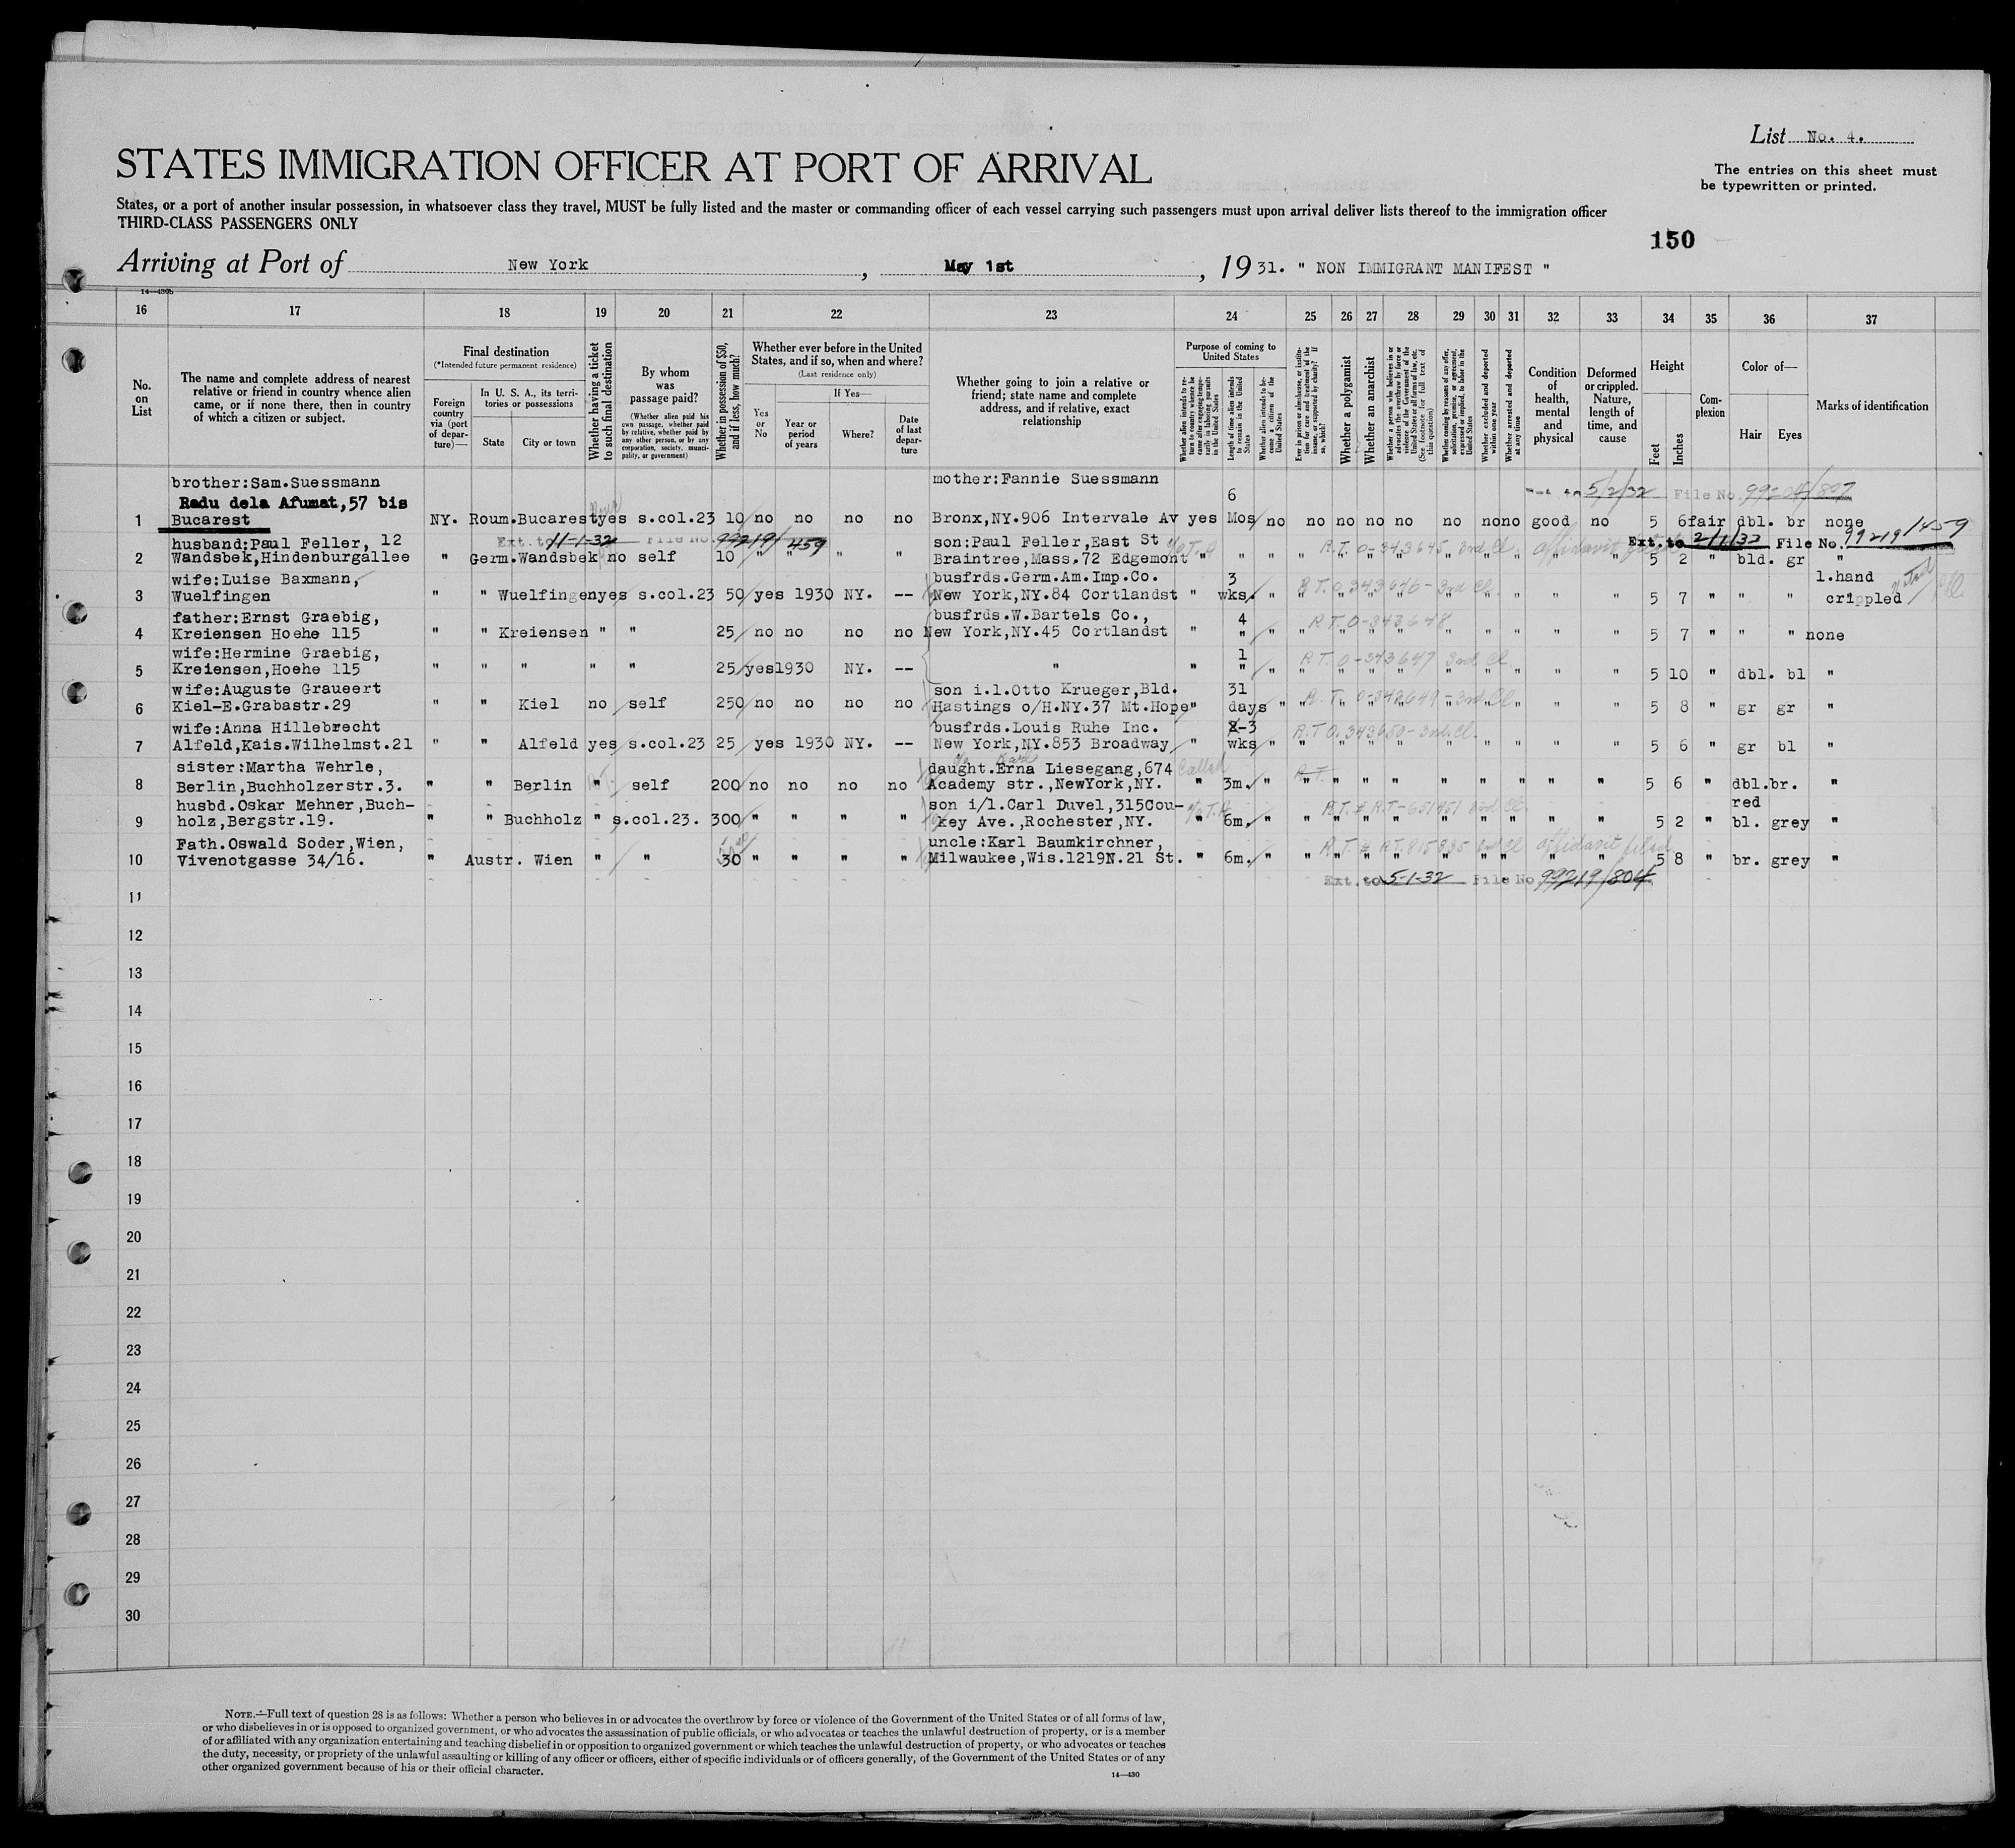 List No. 4.
STATES IMMIGRATION OFFICER AT PORT OF ARRIVAL
The entries on this sheet must
be typewritten or printed.
States, or a port of another insular possession, in whatsoever class they travel, MUST be fully listed and the master or commanding officer of each vessel carrying such passengers must upon arrival deliver lists thereof to the immigration officer
THIRD-CLASS PASSENGERS ONLY
150
Arriving at Port of New York, May 1st, 1931. " NON IMMIGRANT MANIFEST "
14—430b
16 17 18 19 20 21 22 23 24 25 26 27 28 29 30 31 32 33 34 35 36 37
No. on List
The name and complete address of nearest relative or friend in country whence alien came, or if none there, then in country of which a citizen or subject.
Final destination
(*Intended future permanent residence)
Foreign country via (port of departure)—
In U. S. A., its territories or possessions
State City or town
Whether having a ticket to such final destination
By whom was passage paid?
(Whether alien paid his own passage, whether paid by relative, whether paid by any other person, or by any corporation, society, municipality, or government)
Whether in possession of $50, and if less, how much?
Whether ever before in the United States, and if so, when and where?
(Last residence only)
Yes or No
If Yes—
Year or period of years
Where?
Date of last departure
Whether going to join a relative or friend; state name and complete address, and if relative, exact relationship
Purpose of coming to United States
Whether alien intends to return to country whence he came after engaging temporarily in laboring pursuits in the United States
Length of time alien intends to remain in the United States
Whether alien intends to become a citizen of the United States
Ever in prison or almshouse, or institution for care and treatment of the insane, or supported by charity? If so, which?
Whether a polygamist
Whether an anarchist
Whether a person who believes in or advocates the overthrow by force or violence of the Government of the United States or all forms of law, etc. (See footnote for full text of this question)
Whether coming by reasons of any offer, solicitation, promise, or agreement, expressed or implied, to labor in the United States
Whether excluded and deported within one year
Whether arrested and deported at any time
Condition of health, mental and physical
Deformed or crippled. Nature, length of time, and cause
Height
Feet Inches
Complexion
Color of—
Hair Eyes
Marks of identification
brother:Sam.Suessmann mother:Fannie Suessmann
Radu dela Afumat,57 bis 6 5/2/32 File No. 99204/807
1 Bucarest NY. Roum.Bucarest yes s.col.23 10 no no no no Bronx,NY.906 Intervale Av yes Mos no no no no no no no no good no 5 6 fair dbl. br none
husband:Paul Feller, 12 Ext. to 11-1-32 File No. 99219/459 son:Paul Feller,East St Ext. to 2/1/32 File No. 99219/459
2 Wandsbek,Hindenburgallee " Germ.Wandsbek no self 10 " " " " Braintree,Mass.72 Edgemont " " " " R.T. 0-343645 3rd Cl. affidavit 5 2 " bld. gr "
wife:Luise Baxmann, busfrds.Germ.Am.Imp.Co. 3 l.hand
3 Wuelfingen " " Wuelfingen yes s.col.23 50 yes 1930 NY. -- New York,NY.84 Cortlandst " wks " R.T. 0 343646-3rd Cl. " " 5 7 " " " crippled
father:Ernst Graebig, busfrds.W.Bartels Co., 4
4 Kreiensen Hoehe 115 " " Kreiensen " " 25 no no no no New York,NY.45 Cortlandst " " " R.T. 0-343648 " " 5 7 " " " none
wife:Hermine Graebig, 1
5 Kreiensen,Hoehe 115 " " " " " 25 yes1930 NY. -- " " " " R.T. 0-343647 3rd Cl. " " 5 10 " dbl. bl "
wife:Auguste Graueert son i.l.Otto Krueger,Bld. 31
6 Kiel-E.Grabastr.29 " " Kiel no self 250 no no no no Hastings o/H.NY.37 Mt.Hope " days " R.T. 0-343649-3rd Cl. " " 5 8 " gr gr "
wife:Anna Hillebrecht busfrds.Louis Ruhe Inc. 2-3
7 Alfeld,Kais.Wilhelmst.21 " " Alfeld yes s.col.23 25 yes 1930 NY. -- New York,NY.853 Broadway " wks " R.T. 0.343650-3rd Cl. " " 5 6 " gr bl "
sister:Martha Wehrle, Karl daught.Erna Liesegang,674 Called
8 Berlin,Buchholzerstr.3. " " Berlin " self 200 no no no no Academy str.,NewYork,NY. " 3m. " R.T. " " " " " " " " " 5 6 " dbl.br. "
husbd.Oskar Mehner,Buch- son i/l.Carl Duvel,315Cou- red
9 holz,Bergstr.19. " " Buchholz " s.col.23. 300 " " " " key Ave.,Rochester,NY. " 6m. " " " " " " " " " " 5 2 " bl. grey "
Fath.Oswald Soder,Wien, uncle:Karl Baumkirchner, affidavit filed
10 Vivenotgasse 34/16. " Austr. Wien " " 30 " " " " Milwaukee,Wis.1219N.21 St. " 6m. " " " " " " " " " " 5 8 " br. grey "
11 Ext. to 5-1-32 File No. 99219/804
12
13
14
15
16
17
18
19
20
21
22
23
24
25
26
27
28
29
30
NOTE.—Full text of question 28 is as follows: Whether a person who believes in or advocates the overthrow by force or violence of the Government of the United States or of all forms of law,
or who disbelieves in or is opposed to organized government, or who advocates the assassination of public officials, or who advocates or teaches the unlawful destruction of property, or is a member
of or affiliated with any organization entertaining and teaching disbelief in or opposition to organized government or which teaches the unlawful destruction of property, or who advocates or teaches
the duty, necessity, or propriety of the unlawful assaulting or killing of any officer or officers, either of specific individuals or of officers generally, of the Government of the United States or of any
other organized government because of his or their official character.
14—430